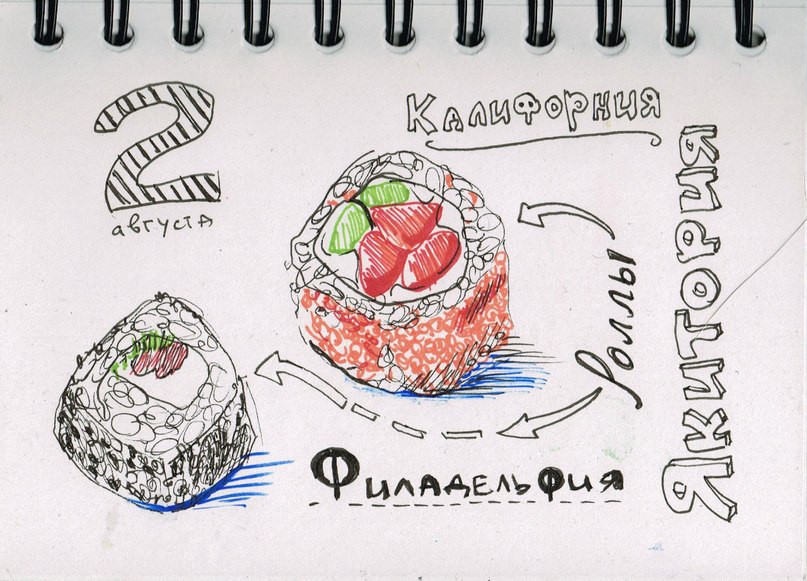 2
августа
Калифорния
Роллы
Якитория
Филадельфия